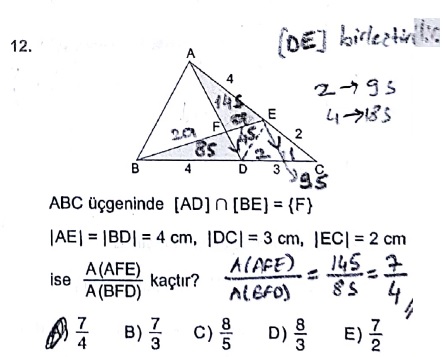 [DE] birleştirilir
12.
A
4
2 → 9S
14S
4 → 18S
E
2a
F
a
4S
2
8S
2
1
B
4
D
3
C
9S
ABC üçgeninde [AD] ∩ [BE] = {F}
|AE| = |BD| = 4 cm, |DC| = 3 cm, |EC| = 2 cm
ise A(AFE)/A(BFD) kaçtır? A(AFE)/A(BFD) = 14S/8S = 7/4 //
A) 7/4 B) 7/3 C) 8/5 D) 8/3 E) 7/2